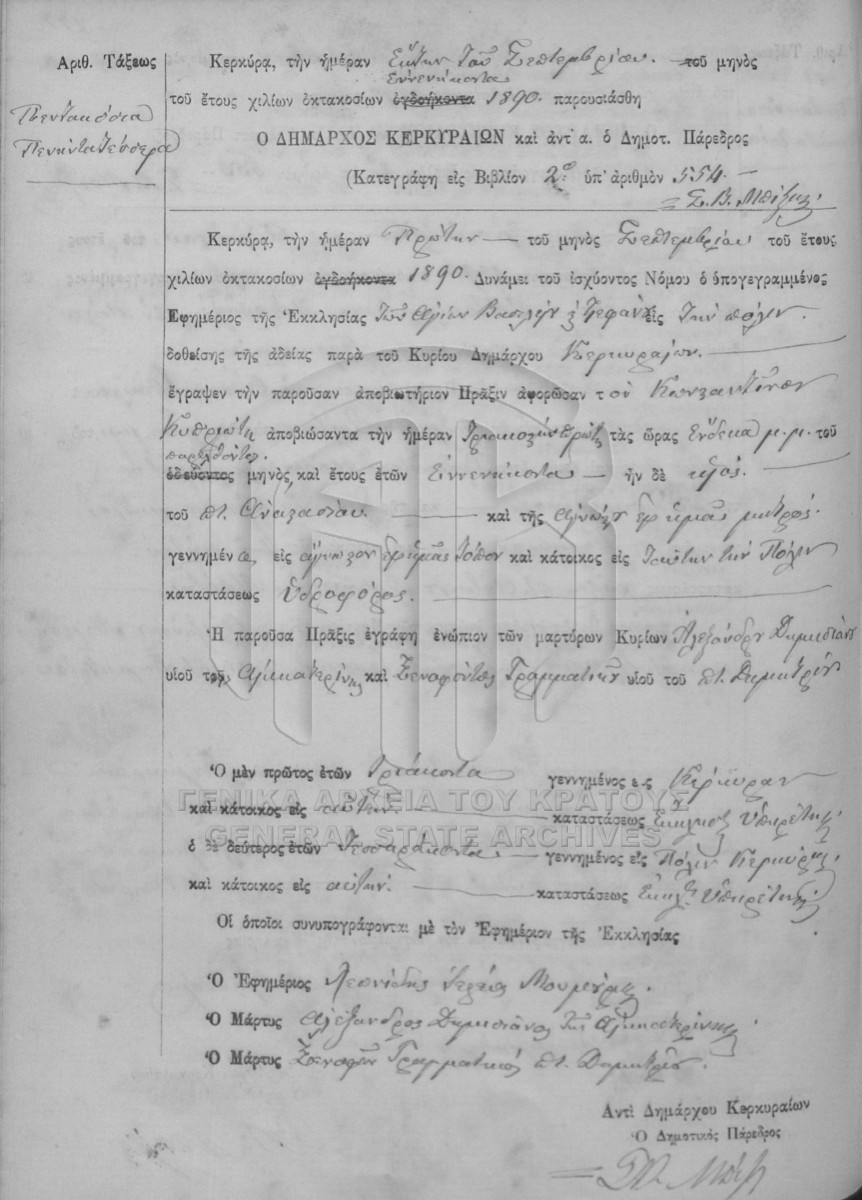 Ἀριθ. Τάξεως
Πεντακόσια
Πενήντα τέσσερα
Κερκύρᾳ, τὴν ἡμέραν Ἕκτην τοῦ Σεπτεμβρίου. τοῦ μηνὸς
ἐννενήκοντα
τοῦ ἔτους χιλίων ὀκτακοσίων ὀγδοήκοντα 1890. παρουσιάσθη
Ὁ ΔΗΜΑΡΧΟΣ ΚΕΡΚΥΡΑΙΩΝ καὶ ἀντ' α. ὁ Δημοτ. Πάρεδρος
(Κατεγράφη εἰς Βιβλίον 2ον ὑπ' ἀριθμὸν 554.
Σ. Β.
Κερκύρᾳ, τὴν ἡμέραν Πρώτην τοῦ μηνὸς Σεπτεμβρίου τοῦ ἔτους
χιλίων ὀκτακοσίων ὀγδοήκοντα 1890. Δυνάμει τοῦ ἰσχύοντος Νόμου ὁ ὑπογεγραμμένος
Ἐφημέριος τῆς Ἐκκλησίας τῶν Ἁγίων Βασιλείου & Στεφάνου εἰς τὴν πόλιν.
δοθείσης τῆς ἀδείας παρὰ τοῦ Κυρίου Δημάρχου Κερκυραίων.
ἔγραψεν τὴν παροῦσαν ἀποβιωτήριον Πρᾶξιν ἀφορῶσαν τὸν Κωνσταντῖνον
Κυπριώτη ἀποβιώσαντα τὴν ἡμέραν τριακοστὴν πρώτη τὰς ὥρας ἕνδεκα μ.μ. τοῦ
παρελθόντος.
ὁδεύοντος μηνὸς, καὶ ἔτους ἐτῶν ἐννενήκοντα ἦν δὲ υἱὸς.
τοῦ ποτ. Ἀναστασίου. καὶ τῆς ἀγνώστου εἰς ἡμᾶς μητρός.
γεννημένα εἰς ἄγνωστον εἰς ἡμᾶς τόπον καὶ κάτοικος εἰς ταύτην τὴν Πόλιν
καταστάσεως Ὑδροφόρος.
Ἡ παροῦσα Πρᾶξις ἐγράφη ἐνώπιον τῶν μαρτύρων Κυρίων Ἀλεξάνδρου Δημισιάνου
υἱοῦ τῆς Αἰκατερίνης καὶ Ξενοφῶντος Γραμματικοῦ υἱοῦ τοῦ ποτ. Δημητρίου
Ὁ μὲν πρῶτος ἐτῶν τριάκοντα γεννημένος εἰς Κέρκυραν
καὶ κάτοικος εἰς αὐτήν. καταστάσεως Ἐκκλησ. Ὑπηρέτης.
ὁ δὲ δεύτερος ἐτῶν τεσσαράκοντα γεννημένος εἰς Πόλιν Κερκύρας.
καὶ κάτοικος εἰς αὐτήν. καταστάσεως Ἐκκλ. Ὑπηρέτης.
Οἱ ὁποῖοι συνυπογράφονται μὲ τὸν Ἐφημέριον τῆς Ἐκκλησίας
Ὁ Ἐφημέριος Λεωνίδας Ἱερεὺς Μουμούρης.
Ὁ Μάρτυς Ἀλέξανδρος Δημισιάνος τῆς Αἰκατερίνης
Ὁ Μάρτυς Ξενοφῶν Γραμματικός ποτ. Δημητρίου.
Ἀντὶ Δημάρχου Κερκυραίων
Ὁ Δημοτικὸς Πάρεδρος
ΓΕΝΙΚΑ ΑΡΧΕΙΑ ΤΟΥ ΚΡΑΤΟΥΣ
GENERAL STATE ARCHIVES